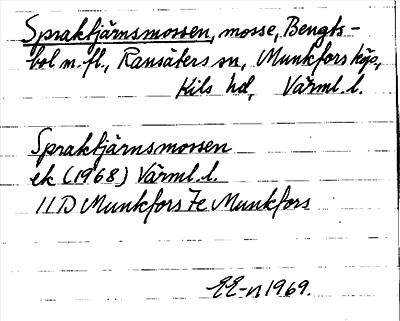 Spraktjärnsmossen, mosse, Bengts-
bol m.fl., Ransäters sn, Munkfors kps,
Kils hd, Värml. l.
Spraktjärnsmossen
ek (1968) Värml. l.
11D Munkfors 7e Munkfors
EE-n 1969.